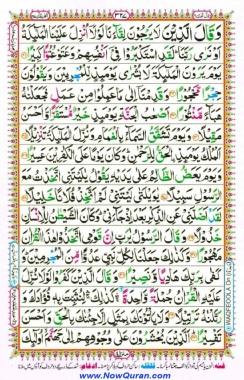 وَقَالَ الَّذِيْنَ لَا يَرْجُوْنَ لِقَآءَنَا لَوْلَآ اُنْزِلَ عَلَيْنَا الْمَلٰٓئِكَةُ
اَوْ نَرٰى رَبَّنَا ؕ لَقَدِ اسْتَكْبَرُوْا فِيْۤ اَنْفُسِهِمْ وَعَتَوْ عُتُوًّا كَبِيْرًا
يَوْمَ يَرَوْنَ الْمَلٰٓئِكَةَ لَا بُشْرٰى يَوْمَئِذٍ لِّلْمُجْرِمِيْنَ وَيَقُوْلُوْنَ
حِجْرًا مَّحْجُوْرًا وَقَدِمْنَآ اِلٰى مَا عَمِلُوْا مِنْ عَمَلٍ فَجَعَلْنٰهُ
هَبَآءً مَّنْثُوْرًا اَصْحٰبُ الْجَنَّةِ يَوْمَئِذٍ خَيْرٌ مُّسْتَقَرًّا وَّاَحْسَنُ
مَقِيْلًا وَيَوْمَ تَشَقَّقُ السَّمَآءُ بِالْغَمَامِ وَنُزِّلَ الْمَلٰٓئِكَةُ تَنْزِيْلًا
اَلْمُلْكُ يَوْمَئِذِ ِۨالْحَقُّ لِلرَّحْمٰنِ وَكَانَ يَوْمًا عَلَى الْكٰفِرِيْنَ عَسِيْرًا
وَيَوْمَ يَعَضُّ الظَّالِمُ عَلٰى يَدَيْهِ يَقُوْلُ يٰلَيْتَنِى اتَّخَذْتُ مَعَ
الرَّسُوْلِ سَبِيْلًا يٰوَيْلَتٰى لَيْتَنِيْ لَمْ اَتَّخِذْ فُلَانًا خَلِيْلًا
لَقَدْ اَضَلَّنِيْ عَنِ الذِّكْرِ بَعْدَ اِذْ جَآءَنِيْ وَكَانَ الشَّيْطٰنُ لِلْاِنْسَانِ
خَذُوْلًا وَقَالَ الرَّسُوْلُ يٰرَبِّ اِنَّ قَوْمِى اتَّخَذُوْا هٰذَا الْقُرْاٰنَ
مَهْجُوْرًا وَكَذٰلِكَ جَعَلْنَا لِكُلِّ نَبِيٍّ عَدُوًّا مِّنَ الْمُجْرِمِيْنَ وَ
كَفٰى بِرَبِّكَ هَادِيًا وَّنَصِيْرًا وَقَالَ الَّذِيْنَ كَفَرُوْا لَوْلَا نُزِّلَ
عَلَيْهِ الْقُرْاٰنُ جُمْلَةً وَّاحِدَةً كَذٰلِكَ لِنُثَبِّتَ بِهٖ فُؤَادَكَ وَ
رَتَّلْنٰهُ تَرْتِيْلًا وَلَا يَاْتُوْنَكَ بِمَثَلٍ اِلَّا جِئْنٰكَ بِالْحَقِّ وَاَحْسَنَ
تَفْسِيْرًا اَلَّذِيْنَ يُحْشَرُوْنَ عَلٰى وُجُوْهِهِمْ اِلٰى جَهَنَّمَ اُولٰٓئِكَ
www.NowQuran.com